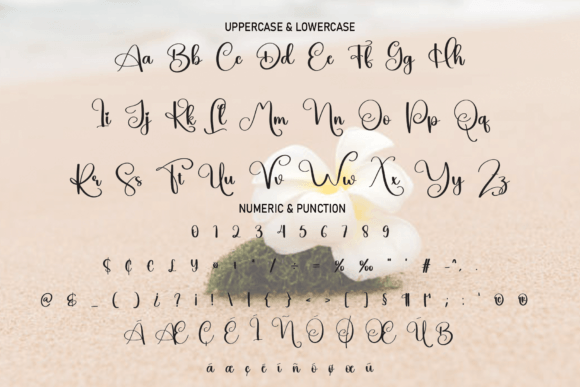 UPPERCASE & LOWERCASE
Aa Bb Cc Dd Ee Ff Gg Hh
Ii Jj Kk Ll Mm Nn Oo Pp Qq
Rr Ss Tt Uu Vv Ww Xx Yy Zz
NUMERIC & PUNCTION
0 1 2 3 4 5 6 7 8 9
$ ¢ € £ ¥ ¤ + / ÷ = % ‰ " ' # - ^ , :
@ & _ ( ) ¿ ? ¡ ! \ | { } < > [ ] § ¶ ; : '
Ã Æ Ç É Î Ñ Ö Ø Œ Ú ß
á æ ç é í ñ ö ø œ ü